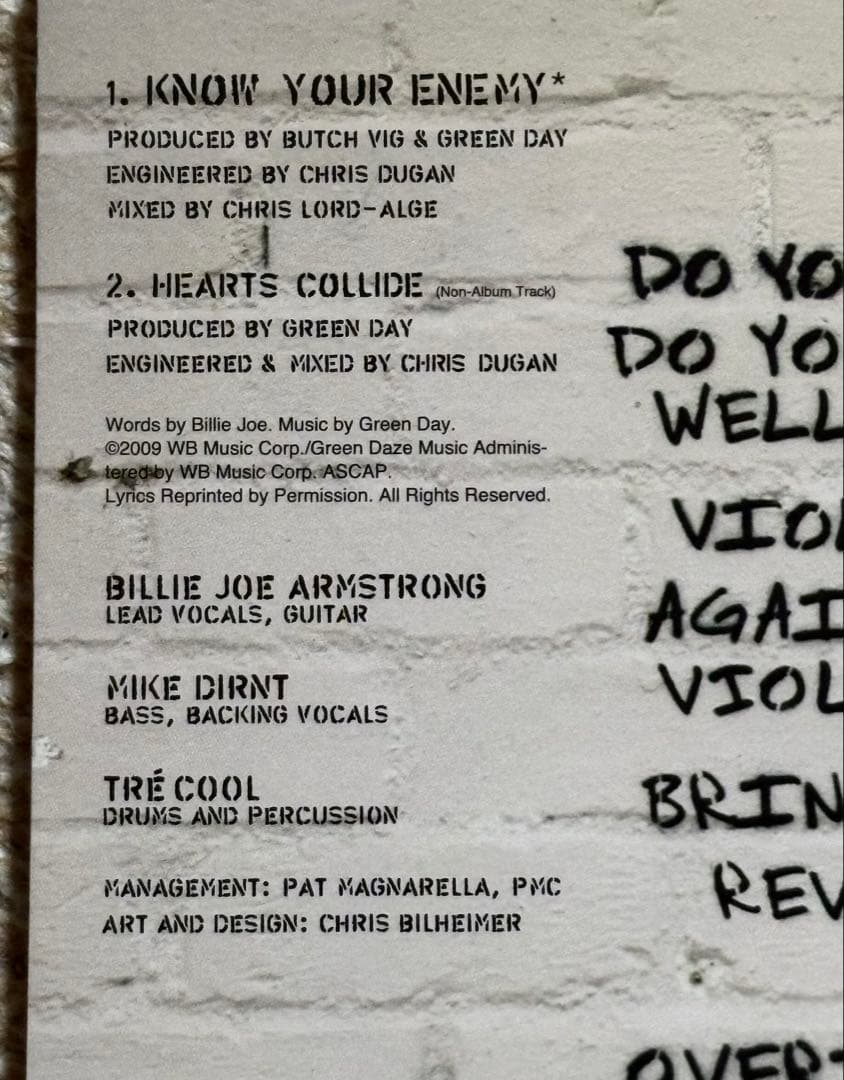 1. KNOW YOUR ENEMY*
PRODUCED BY BUTCH VIG & GREEN DAY
ENGINEERED BY CHRIS DUGAN
MIXED BY CHRIS LORD-ALGE
2. HEARTS COLLIDE (Non-Album Track)
PRODUCED BY GREEN DAY
ENGINEERED & MIXED BY CHRIS DUGAN
Words by Billie Joe. Music by Green Day.
©2009 WB Music Corp./Green Daze Music Adminis-
tered by WB Music Corp. ASCAP.
Lyrics Reprinted by Permission. All Rights Reserved.
BILLIE JOE ARMSTRONG
LEAD VOCALS, GUITAR
MIKE DIRNT
BASS, BACKING VOCALS
TRÉ COOL
DRUMS AND PERCUSSION
MANAGEMENT: PAT MAGNARELLA, PMC
ART AND DESIGN: CHRIS BILHEIMER
DO YO
DO YO
WELL
VIOL
AGAI
VIOL
BRIN
REV